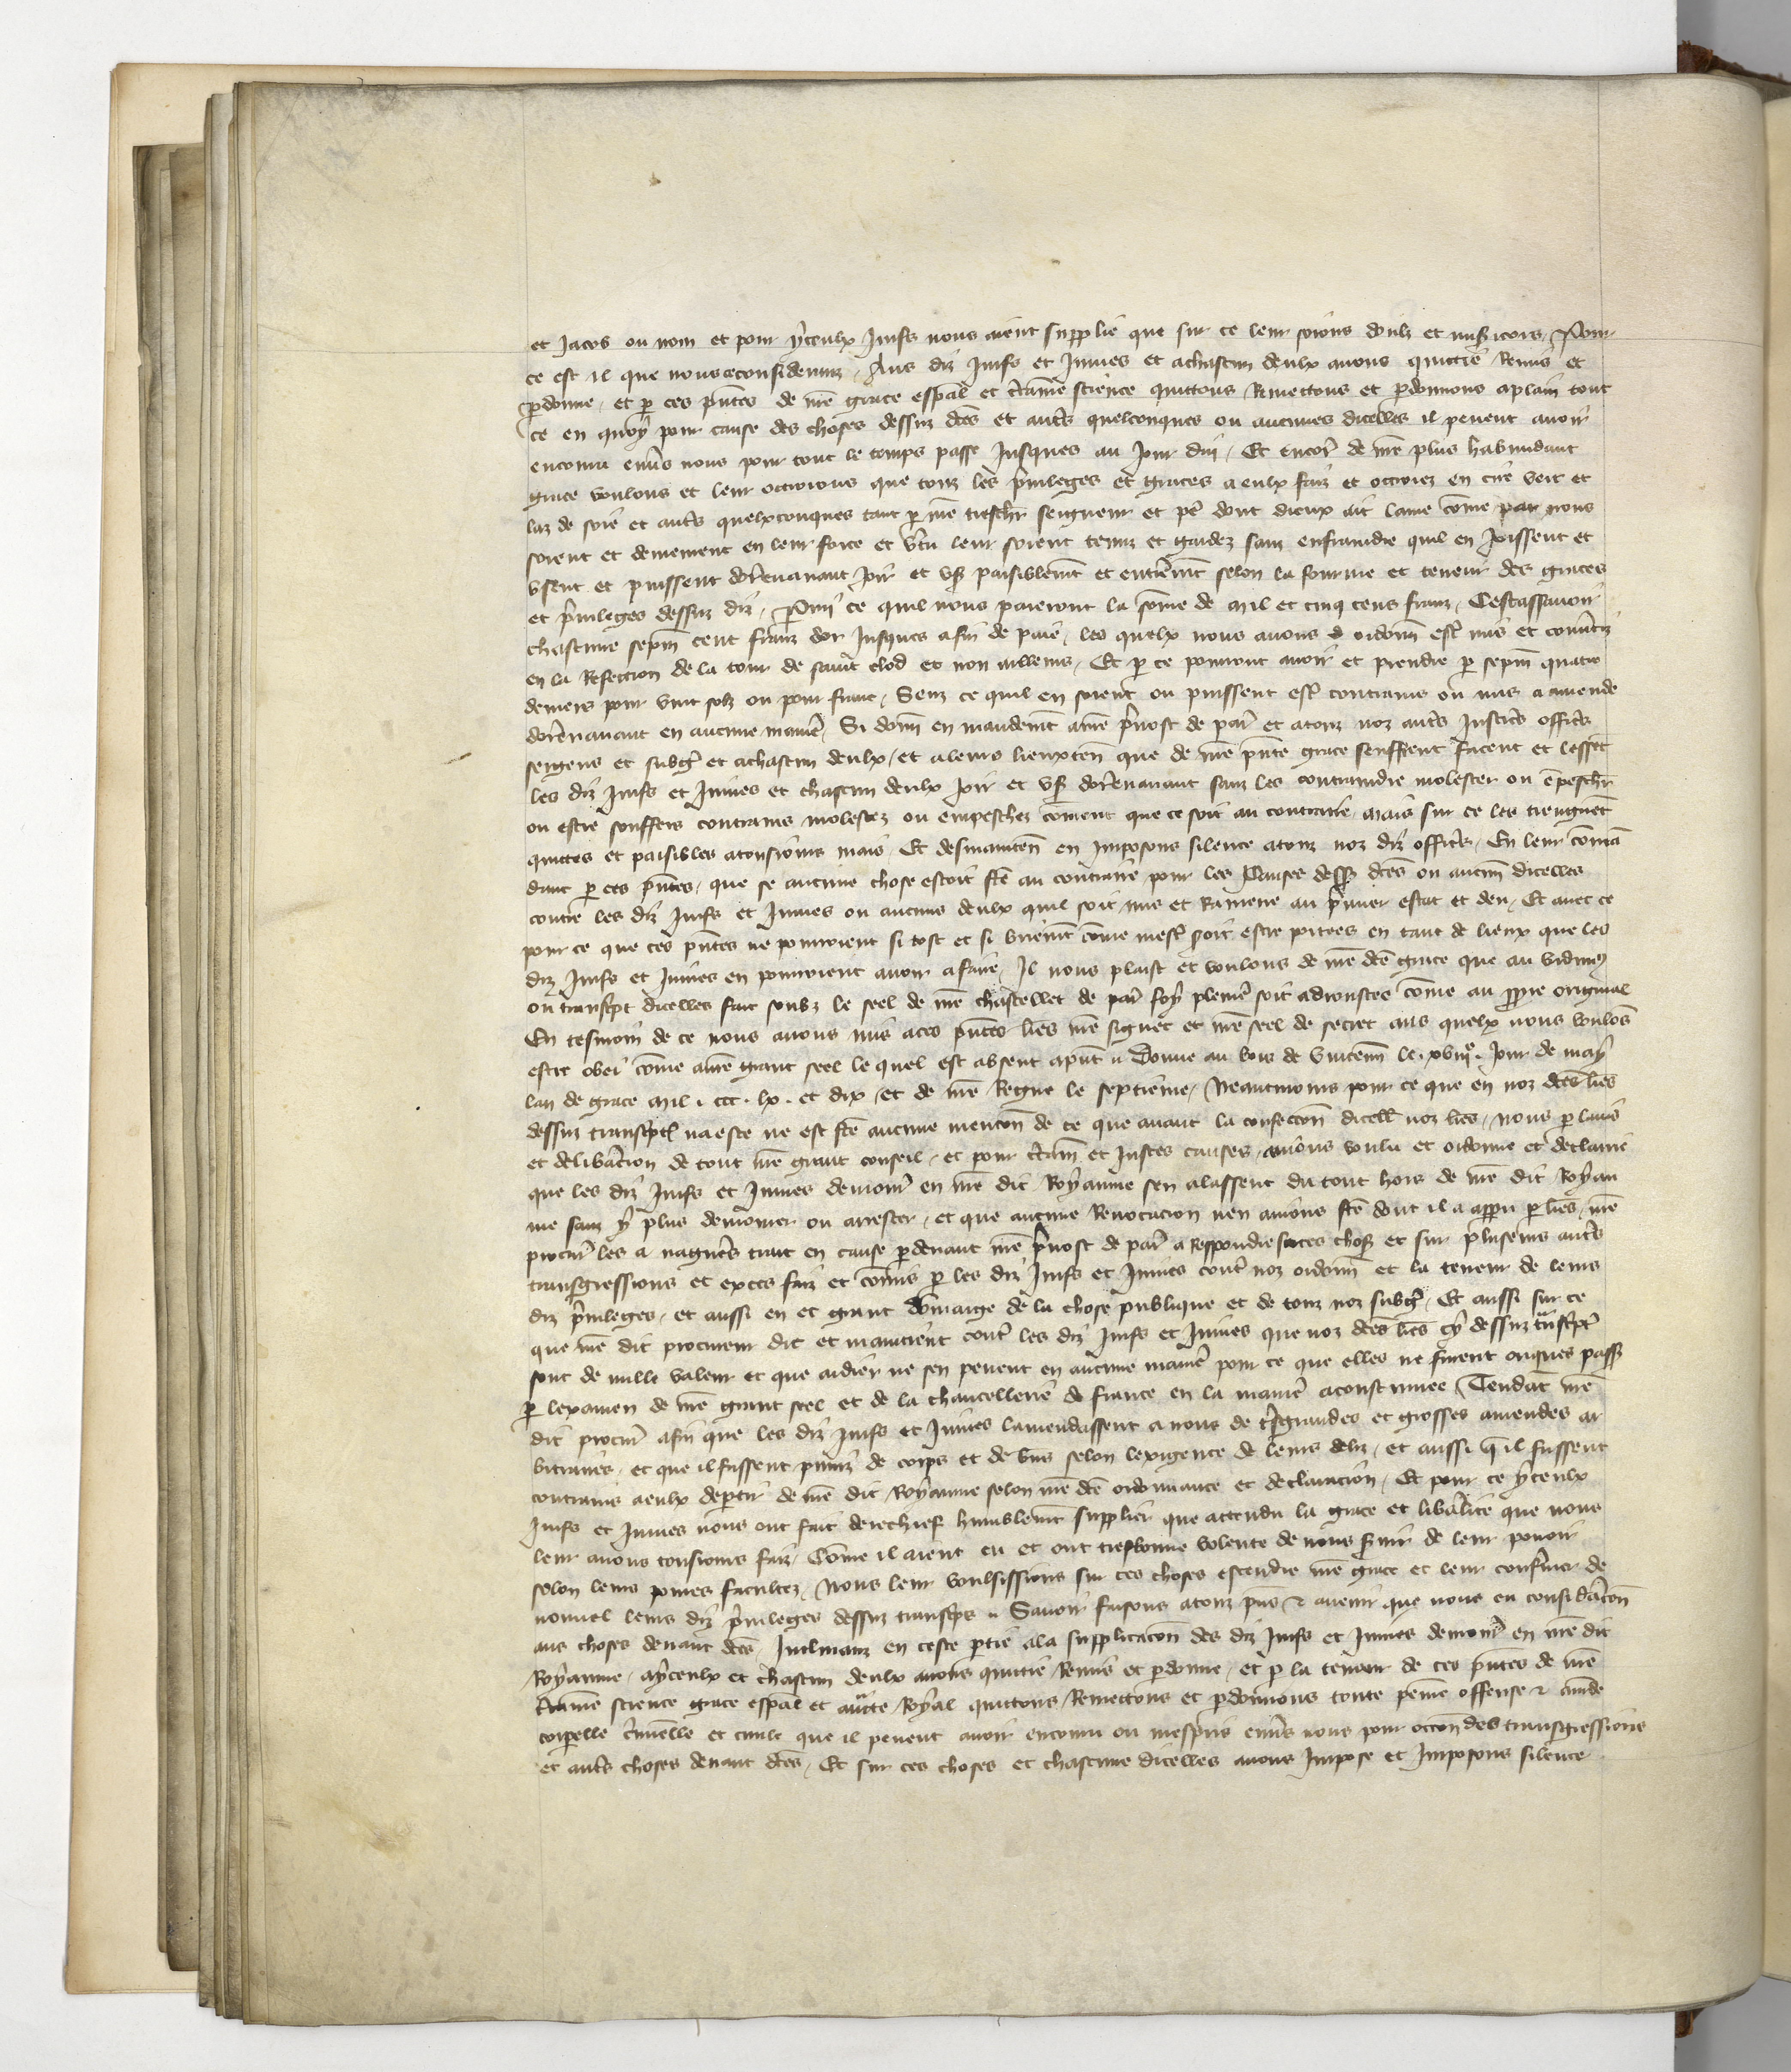 et Jacob ou nom et pour yceulx Juifs nous aient supplié que sur ce leur soions doulz et misicors / Pour
ce est il que nous ce consideranz / Aus diz Juifs et Juives et achascun deulx avons quictié / Remis et
pdonné / et p ces pñtes de nre grace espãl et ctaine science quittons / Remettons et pdonnons aplain tout
ce en quoy pour cause des choses dessus dces et auts quelconques ou aucunes dicelles il peuent avoir
encouru enūs nous pour tout le temps passe Jusques au Jour dui / Et encor de nre plus habundant
grace voulons et leur octroions que touz les pvileges et graces a eulx faiz et octroiez en cire vert et
laz de soie et auts quelxconques tant p nre treschr seigneur et pe dont dieux ait lame cõme par nous
soient et demeurent en leur force et vtu leur soient tenuz et gardez sanz enfraindre quil en Joissent et
usent et puissent dorenavant Joir et us paisiblemt et entieremt selon la fourme et teneur des graces
et pvileges dessus diz / Pmi ce quil nous paieront la some de mil et cinq cens franz / Cestassavoir
chascune sepm cent franz dor Jusques afin de paie / les quelx nous avons ordonn est mis et convtiz
en la Refeccion de la tour de saint clod et non ailleurs / Et p ce pourront avoir et prendre p sepm quatre
deniers pour vint solz ou pour franc / Senz ce quil en soient ou puissent est contrains ou mis a amende
dorenavant en aucune manie / Si donn en mandemt anre pvost de par et atouz noz auts Justics offics
sergens et subgz et achascun deulx / et aleurs lieuxten que de nre pnte grace seuffrent facent et lessent
les diz Juifs et Juives et chascun deulx Joir et us dorenavant sanz les contraindre molester ou epeschr
ou estre souffers contrains molestez ou empeschez cõment que ce soit au contraire / mais sur ce les tiengnet
quictes et paisibles atousiours mais / Et desmainten en Imposons silence atouz noz diz offics / En leur comã
dant p ces pntes / que se aucune chose estoit fte au contraire pour les causes dess dces ou aucun dicelles
contre les diz Juifs et Juives ou aucuns deulx quil soit mis et Ramene au pmier estat et deu / Et avec ce
pour ce que ces pntes ne pourroient si tost et si briemt cõme mest soit estre portees en tant de lieux que les
diz Juifs et Juives en pourroient avoir afaire / Il nous plaist et voulons de nre dce grace que au vidimus
ou transcpt dicelles fait soubz le seel de nre chastellet de par foy pleniere soit adioustee cõme au ppre original
En tesmoin de ce nous avons mis aces pntes lres nre signet et nre seel de secret aus quelx nous voulons
estre obei cõme anre grant seel le quel est absent apnt // Donne au bois de vincenn le . xviije . Jour de may
lan de grace mil . ccc . lx . et dix / et de nre Regne le septieme / Neantmoins pour ce que en noz dces lres
dessus transcptes naeste ne est fte aucune mencon de ce que avant la confeccon dicell noz lres / nous p lavis
et delibacion de tout nre grant conseil / et pour ctain et Justes causes / avions voulu et ordonne et declairie
que les diz Juifs et Juives demour en nre dit Royaume sen alassent du tout hors de nre dit Royau
me sanz y plus demourer ou arrester / et que aucune Revocacion nen avions fte dont il a apparu p lres / nre
procur les a nagueres trait en cause pdevant nre pvost de par a Respondre sur ces choses et sur pluseurs auts
transgressions et exces faiz et cõmis p les diz Juifs et Juives cont noz ordonn et la teneur de leurs
diz pvileges / et aussi en et grant dõmaige de la chose publique et de touz noz subgz / Et aussi sur ce
que nre dit procureur dit et maintient cont les diz Juifs et Juives que noz dces lres cy dessus transcptes
sont de nulle valeur et que aidier ne sen peuent en aucune manie pour ce que elles ne furent onques pass
p lexamen de nre grant seel et de la chancellerie de france en la manie acoustumee / Tendant nre
dit procur afin que les diz Juifs et Juives lamendassent a nous de tsgrandes et grosses amendes ar
bitraires / et que il fussent puniz de corps et de biens selon lexigence de leurs deliz / et aussi q il fussent
contrains aeulx deptir de nre dit Royaume selon nre dce ordonnance et declaracion / Et pour ce yceulx
Juifs et Juives nous ont fait derechief humblemt supplier que attendu la grace et libalite que nous
leur avons tousiours faiz / Cõme il aient eu et ont tresbonne volente de nous svir de leur povoir
selon leurs povres facultez / Nous leur voulsissions sur ces choses estendre nre grace et leur confirmer de
nouvel leurs diz pvileges dessus transcps // Savoir faisons atouz pns et avenir que nous en consideracon
aus choses devant dces / Inclinanz en ceste ptie ala supplicacon des diz Juifs et Juives demour en nre dit
Royaume / ayceulx et chascun deulx avons quictie Remis et pdonne / et p la teneur de ces pntes de nre
ctaine science grace espal et aucte Royal quictons / Remettons et pdonnons toute peine offense et amde
corpelle criminelle et civile que il peuent avoir encouru ou mespris enūs nous pour occon des transgressions
et auts choses devant dces / Et sur ces choses et chascune dicelles avons Impose et Imposons silence